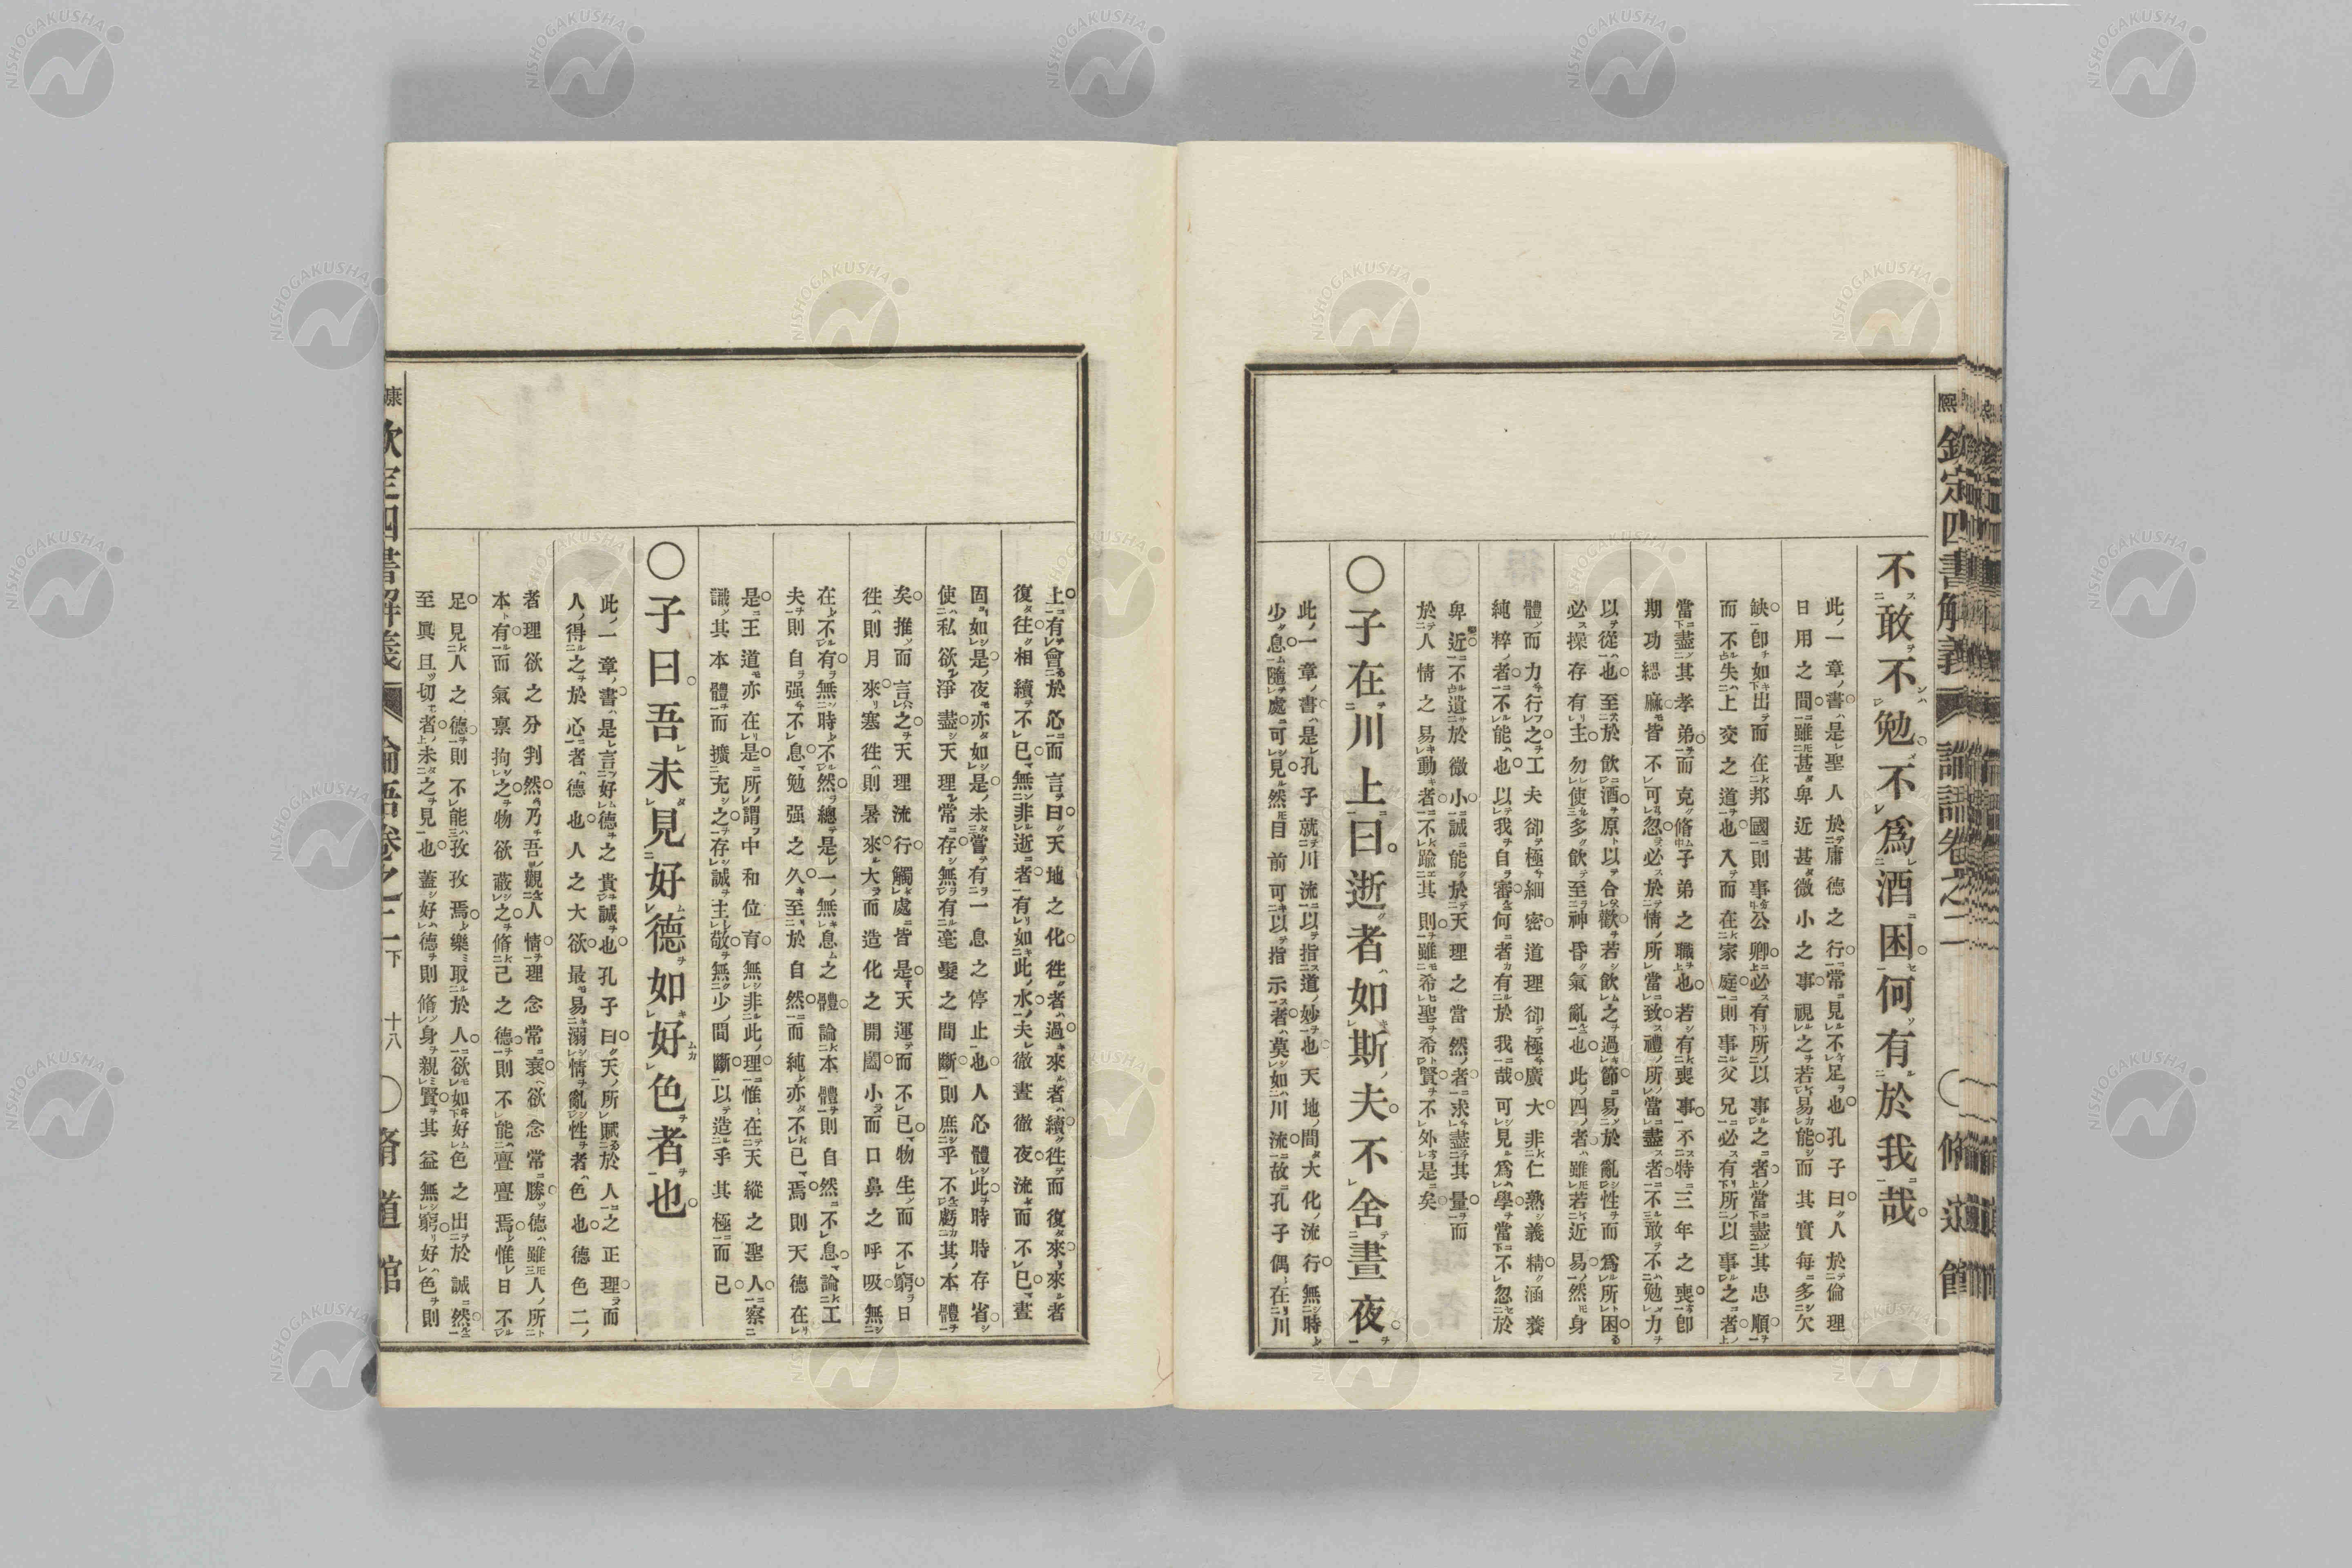 欽定四書解義 論語卷之二
不敢不勉不爲酒困何有於我哉
此一章書是聖人於庸德之行常見不足也孔子曰人於倫理
日用之間雖甚卑近甚微小之事視之若易能而其實每多欠
缺卽如出而在邦國則事公卿必有所以事之者當盡其忠順
而不失上交之道也入而在家庭則事父兄必有所以事之者
當盡其孝弟而克脩子弟之職也若有喪事不特三年之喪卽
期功緦麻皆不可忽必於情所當致禮所當盡者不敢不勉力
以從也至於飮酒原以合歡若飮之過節易於亂性而爲所困
必操存有主勿使多飮至神昏氣亂也此四者雖若近易然身
體而力行之工夫卻極細密道理卻極廣大非仁熟義精涵養
純粹者不能也以我自審何者有於我哉可見爲學當不忽於
卑近不遺於微小誠能於天理之當然者求盡其量而
於人情之易動者不踰其則雖希聖希賢不外是矣
〇子在川上曰逝者如斯夫不舍晝夜
此一章書是孔子就川流以指道妙也天地間大化流行無時
少息隨處可見然目前可以指示者莫如川流故孔子偶在川
上有會於心而言曰天地之化徃者過來者續徃而復來來者
復徃相續不已無非逝者有如此水夫徹晝徹夜流而不已晝
固如是夜亦如是未當有一息之停止也人必體此時時存省
使私欲淨盡天理常存無有毫髮之間斷則庶乎不虧其本體
矣推而言之天理流行觸處皆是天運而不已物生而不窮日
徃則月來寒徃則暑來大而造化之開闔小而口鼻之呼吸無
在不有無時不然總是一無息之體論本體則自然不息論工
夫則自强不息勉强之久至於自然而純亦不已焉則天德在
是王道亦在是所謂中和位育無非此理惟在天縱之聖人察
識其本體而擴充之存誠主敬無少間斷以造乎其極而已
〇子曰吾未見好德如好色者也
此一章書是言好德之貴誠也孔子曰天所賦於人之正理而
人得之於心者德也人之大欲最易溺情亂性者色也德色二
者理欲之分判然乃吾觀人情理念常衰欲念常勝德雖人所
本有而氣禀拘之物欲蔽之脩己之德則不能亹亹焉惟日不
足見人之德則不能孜孜焉樂取於人欲如好色之出於誠然
至眞且切者未之見也蓋好德則脩身親賢其益無窮好色則
欽定四書解義 論語卷之二下 十八 〇脩道館